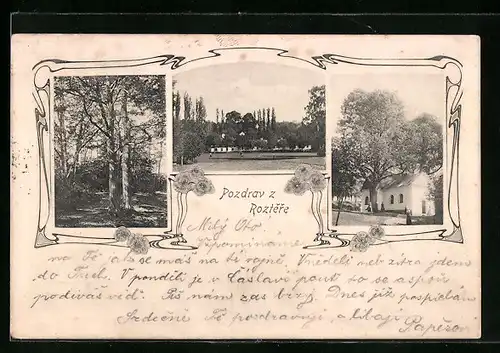 Pozdrav z
Roztěře
Milý Oto.
Vzpomínáme
na Tě jak se máš na té vojně. V neděli neb zítra jdem
do V pondělí je v Čáslavě pouť to se aspoň
podíváš viď. Piš nám zas brzy. Dnes již pospíchám
Srdečně Tě pozdravují a líbají